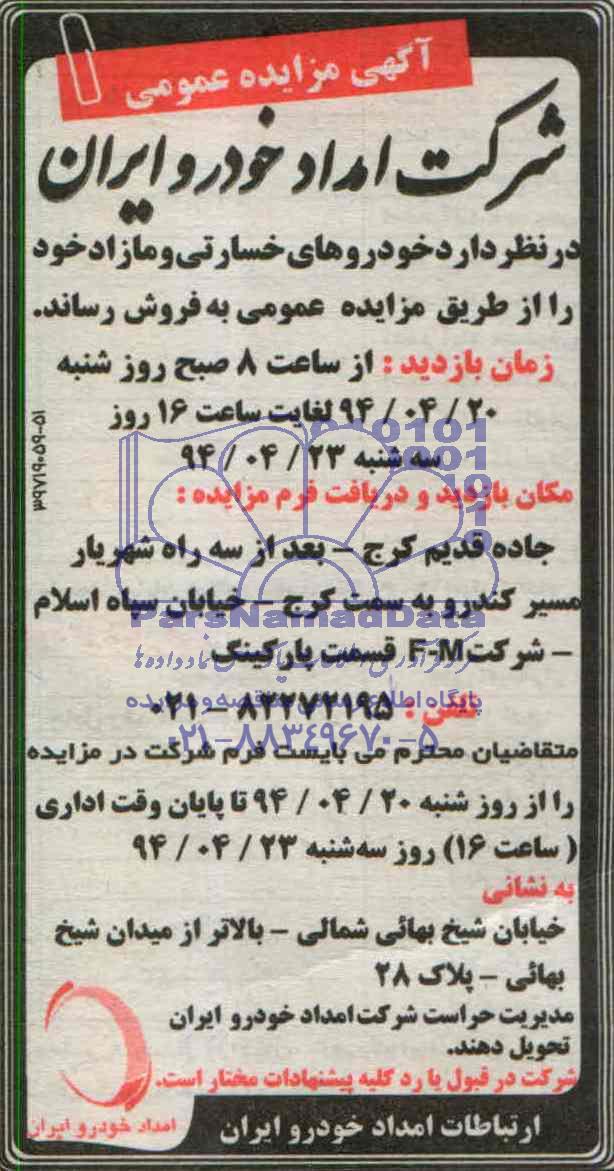 آگهی مزایده عمومی
شرکت امداد خودرو ایران
در نظر دارد خودروهای خسارتی و مازاد خود
را از طریق مزایده عمومی به فروش رساند.
زمان بازدید : از ساعت ۸ صبح روز شنبه
۹۴ / ۰۴ / ۲۰ لغایت ساعت ۱۶ روز
سه شنبه ۲۳ / ۰۴ / ۹۴
مکان بازدید و دریافت فرم مزایده :
جاده قدیم کرج – بعد از سه راه شهریار
مسیر کندرو به سمت کرج – خیابان سپاه اسلام
– شرکت F-M قسمت پارکینگ
تلفن : ۸۲۲۷۲۱۹۵ – ۰۲۱
متقاضیان محترم می بایست فرم شرکت در مزایده
را از روز شنبه ۲۰ / ۰۴ / ۹۴ تا پایان وقت اداری
( ساعت ۱۶) روز سه‌شنبه ۲۳ / ۰۴ / ۹۴
به نشانی
خیابان شیخ بهائی شمالی – بالاتر از میدان شیخ
بهائی – پلاک ۲۸
مدیریت حراست شرکت امداد خودرو ایران
تحویل دهند.
شرکت در قبول یا رد کلیه پیشنهادات مختار است.
امداد خودرو ایران
ارتباطات امداد خودرو ایران
۳۹۷۱۹۰۵۹-۵۱
ParsNamadData
پایگاه اطلاع رسانی مناقصه و مزایده
۰۲۱-۸۸۳۴۹۶۷۰-۵